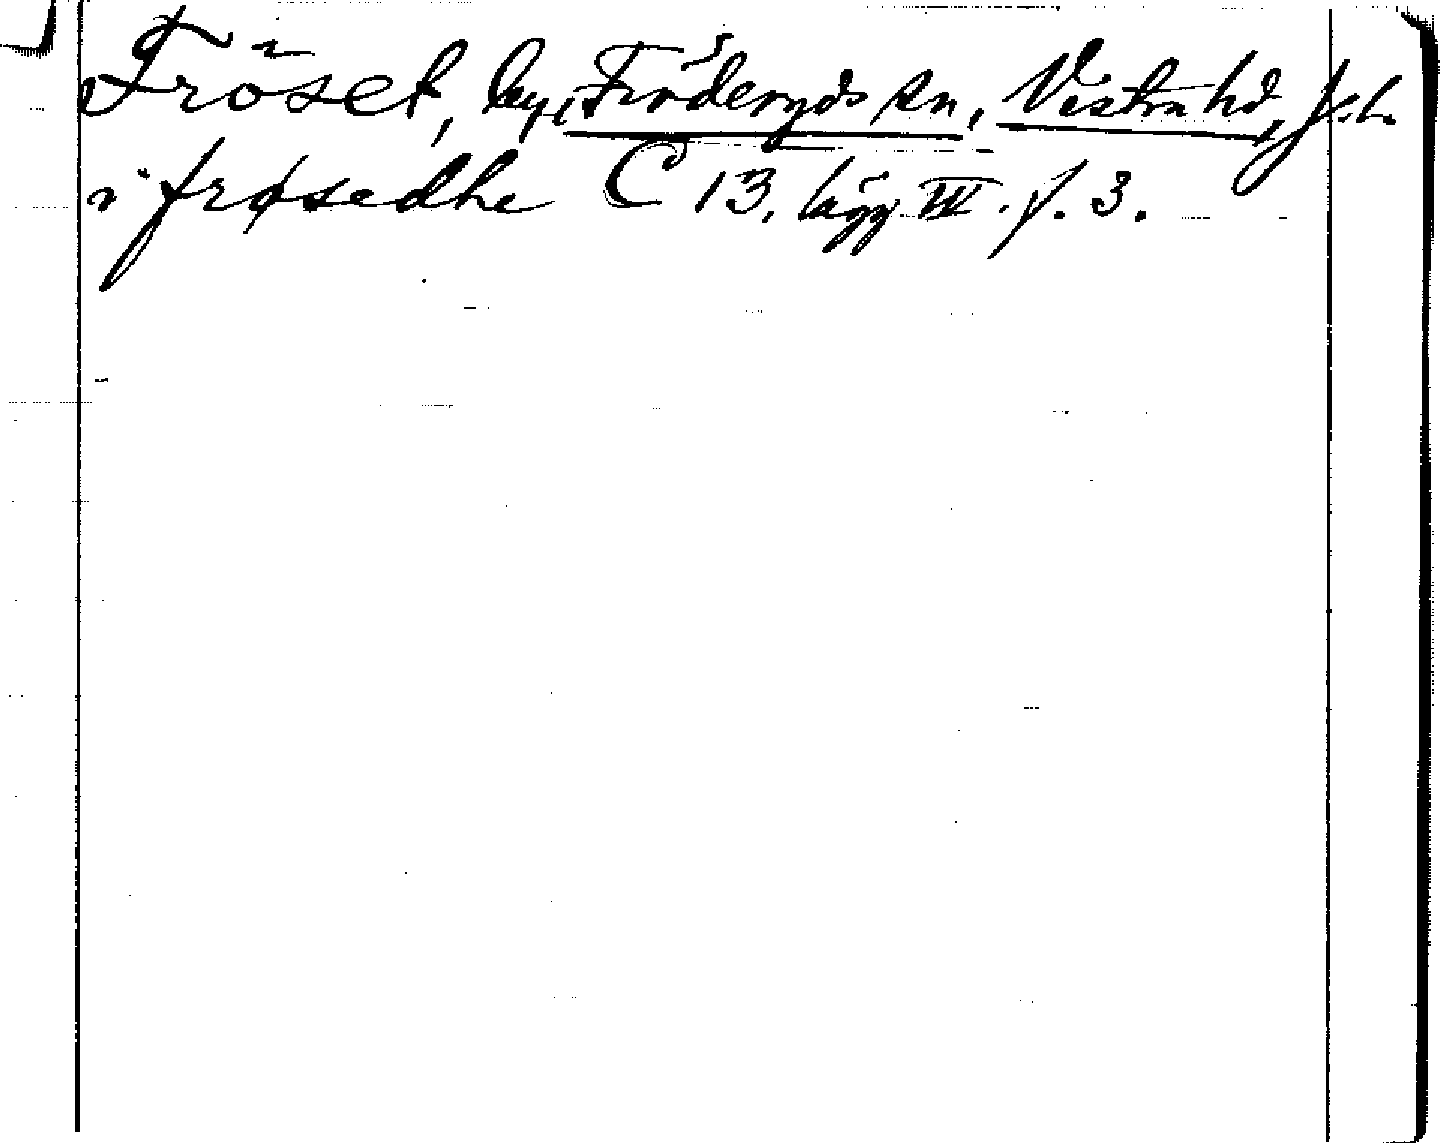 Fröset, by, Fröderyds sn, Västra hd, Jkl.
i frøsedhe C 13. lägg III. f. 3.